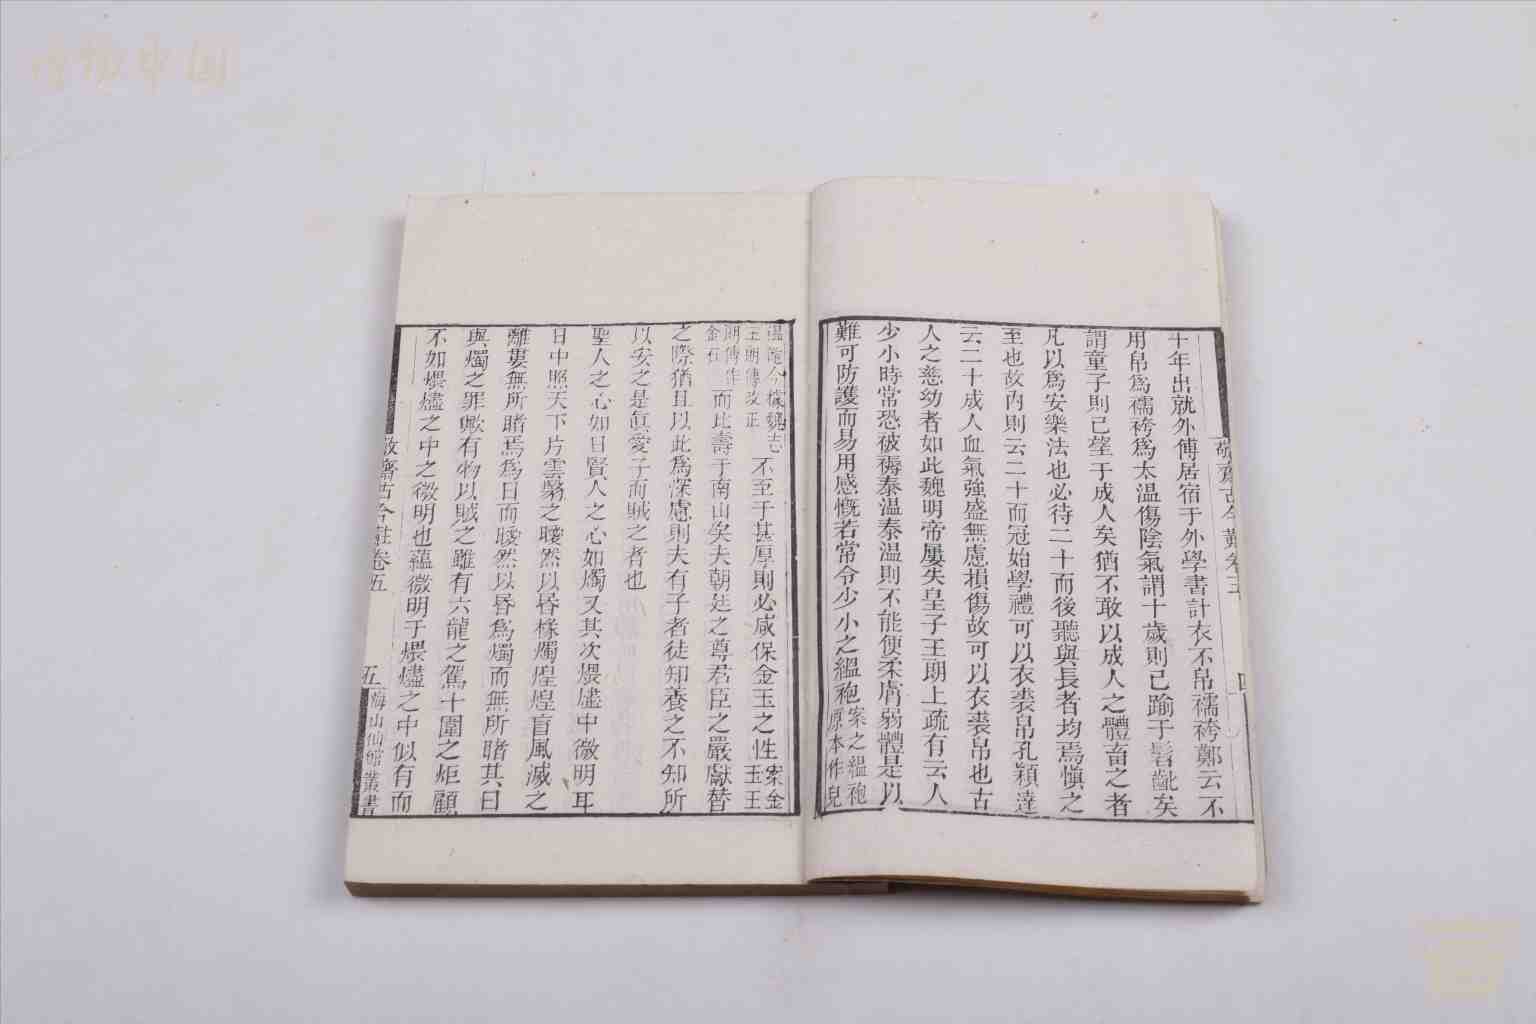 十年出就外傅居宿于外學書計衣不帛襦袴鄭云不
用帛爲襦袴爲太温傷陰氣謂十歲則已踰于髫齔矣
謂童子則已望于成人矣猶不敢以成人之體畜之者
凡以爲安樂法也必待二十而後聽與長者均焉愼之
至也故內則云二十而冠始學禮可以衣裘帛孔穎達
云二十成人血氣強盛無慮損傷故可以衣裘帛也古
人之慈幼者如此魏明帝屢失皇子王朗上疏有云人
少小時常恐被褥泰温泰温則不能便柔膚弱體是以
難可防護而易用感慨若常令少小之縕袍案之縕袍
原本作兒
敬齋古今黈卷五
四
温飽今據魏志
王朗傳改正 不至于甚厚則必咸保金玉之性案金
玉王
朗傳作
金石 而比壽于南山矣夫朝廷之尊君臣之嚴獻替
之際猶且以此爲深慮則夫有子者徒知養之不知所
以安之是眞愛子而賊之者也
聖人之心如日賢人之心如燭又其次煨燼中微明耳
日中照天下片雲翳之曖然以昏椽燭煌煌盲風滅之
離婁無所睹焉爲日而曖然以昏爲燭而無所睹其日
與燭之罪歟有物以賊之雖有六龍之駕十圍之炬顧
不如煨燼之中之微明也蘊微明于煨燼之中似有而
敬齋古今黈卷五
五
海山仙館叢書